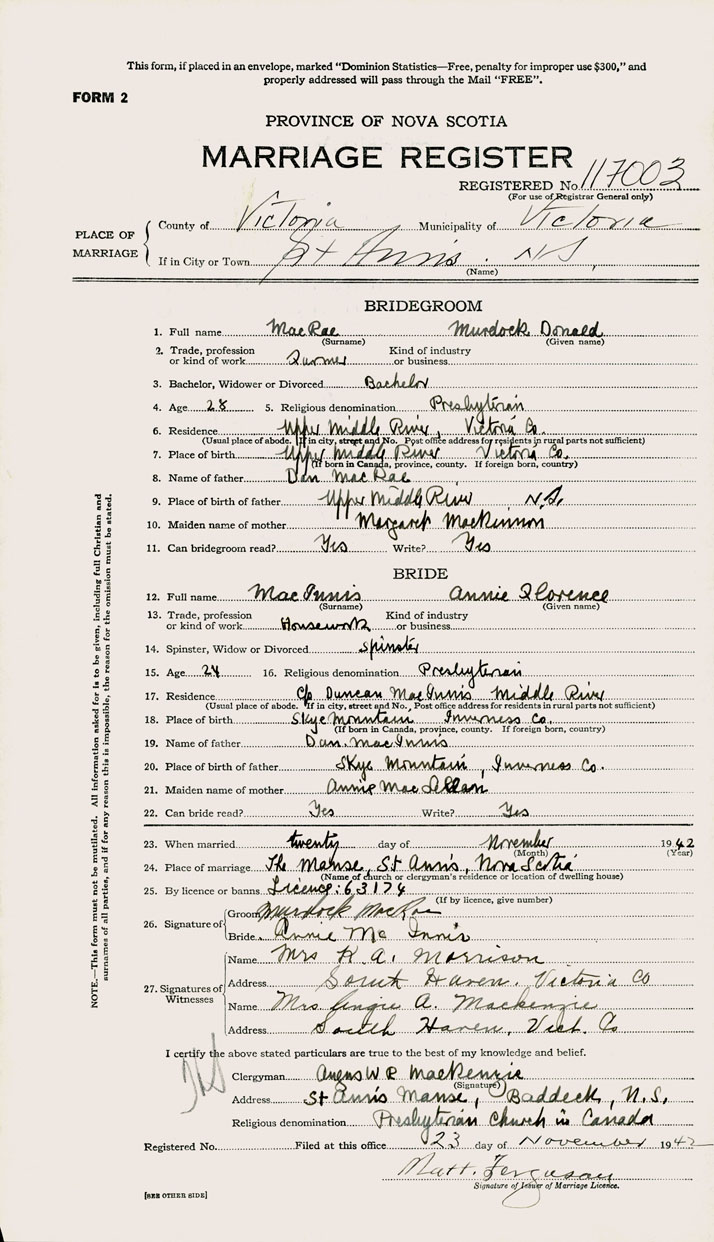 This form, if placed in an envelope, marked "Dominion Statistics—Free, penalty for improper use $300," and
properly addressed will pass through the Mail "FREE".
FORM 2
PROVINCE OF NOVA SCOTIA
MARRIAGE REGISTER
REGISTERED No. 117003
(For use of Registrar General only)
PLACE OF MARRIAGE
County of Victoria Municipality of Victoria
If in City or Town St Annis. N.S.
(Name)
BRIDEGROOM
1. Full name MacRae Murdock Donald
(Surname) (Given name)
2. Trade, profession or kind of work Farmer Kind of industry or business
3. Bachelor, Widower or Divorced Bachelor
4. Age 28 5. Religious denomination Presbyterian
6. Residence Upper Middle River, Victoria Co.
(Usual place of abode. If in city, street and No. Post office address for residents in rural parts not sufficient)
7. Place of birth Upper Middle River Victoria Co.
(If born in Canada, province, county. If foreign born, country)
8. Name of father Dan MacRae
9. Place of birth of father Upper Middle River N.S.
10. Maiden name of mother Margaret MacKinnon
11. Can bridegroom read? Yes Write? Yes
BRIDE
12. Full name MacInnis Annie Florence
(Surname) (Given name)
13. Trade, profession or kind of work Housework Kind of industry or business
14. Spinster, Widow or Divorced Spinster
15. Age 24 16. Religious denomination Presbyterian
17. Residence C/o Duncan MacInnis Middle River
(Usual place of abode. If in city, street and No., Post office address for residents in rural parts not sufficient)
18. Place of birth Skye Mountain Inverness Co.
(If born in Canada, province, county. If foreign born, country)
19. Name of father Dan. MacInnis
20. Place of birth of father Skye Mountain, Inverness Co.
21. Maiden name of mother Annie Mac
22. Can bride read? Yes Write? Yes
23. When married twenty day of November 1942
(Month) (Year)
24. Place of marriage The Manse, St Annis, Nova Scotia
(Name of church or clergyman's residence or location of dwelling house)
25. By licence or banns Licence: 63174
(If by licence, give number)
26. Signature of
Groom Murdock MacRae
Bride Annie Mc Innis
27. Signatures of Witnesses
Name Mrs K. A. Morrison
Address South Haven, Victoria Co
Name Mrs Angie A. Mackenzie
Address South Haven, Vict. Co
I certify the above stated particulars are true to the best of my knowledge and belief.
Clergyman Angus W R MacKenzie
(Signature)
Address St Annis Manse, Baddeck, N.S.
Religious denomination Presbyterian Church in Canada
Registered No. Filed at this office 23 day of November 1942
Matt. Ferguson
Signature of Issuer of Marriage Licence.
[SEE OTHER SIDE]
NOTE.—This form must not be mutilated. All information asked for is to be given, including full Christian and
surnames of all parties, and if for any reason this is impossible, the reason for the omission must be stated.